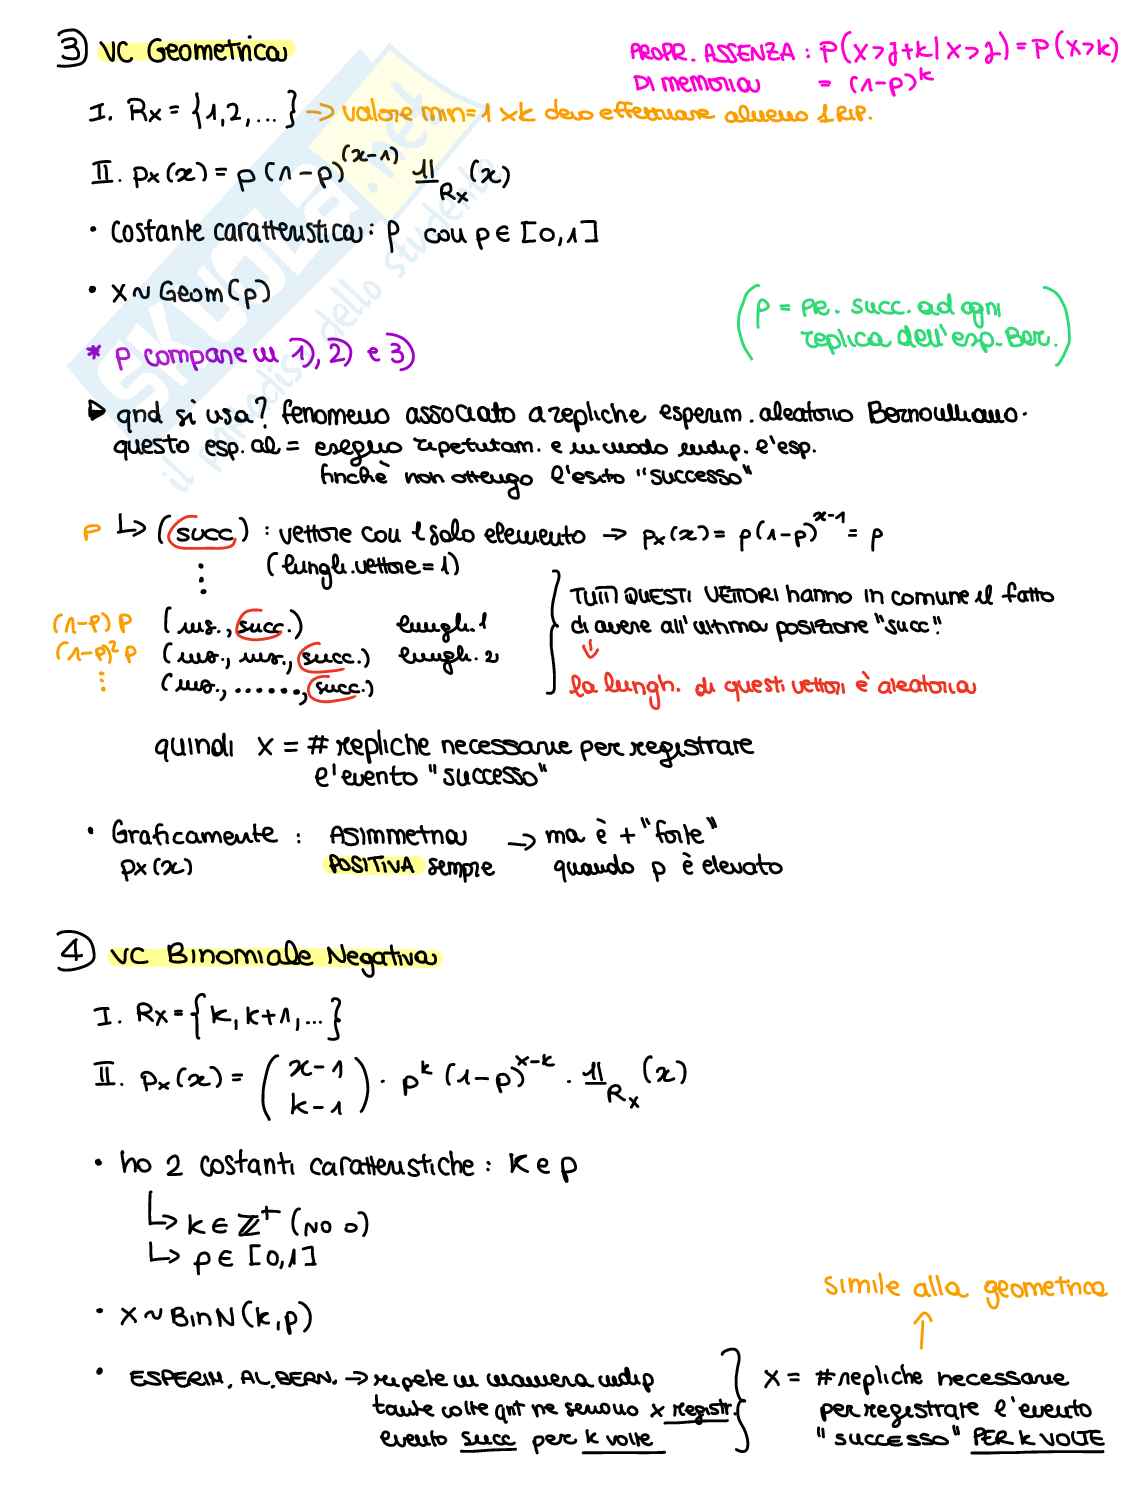 3 VC Geometrica
PROPR. ASSENZA : P(X>j+k|X>j) = P(X>k)
DI memoria = (1-p)^k
I. Rx = {1,2,...} → valore min=1 xk devo effettuare almeno 1 RIP.
II. px(x) = p(1-p)^(x-1) 𝟙_Rx(x)
• Costante caratteristica: p con p∈[0,1]
• X ~ Geom(p)
(p = PR. succ. ad ogni
replica dell'esp. Ber.)
* p compare in 1), 2) e 3)
▶ qnd si usa? fenomeno associato a repliche esperim. aleatorio Bernoulliano.
questo esp. al = eseguo ripetutam. e in modo indip. l'esp.
finchè non ottengo l'esito "successo"
p ↳ (succ) : vettore con 1 solo elemento → px(x) = p(1-p)^x-1 = p
⋮ (lungh. vettore = 1)
(1-p) p (ins., succ.) lungh. 1
(1-p)² p (ins., ins., succ.) lungh. 2
⋮ (ins., ......, succ.)
TUTTI QUESTI VETTORI hanno in comune il fatto
di avere all'ultima posizione "succ."
↓
la lungh. di questi vettori è aleatoria
quindi X = # repliche necessarie per registrare
l'evento "successo"
• Graficamente : ASIMMETRIA → ma è + "forte"
px(x) POSITIVA sempre quando p è elevato
4 VC Binomiale Negativa
I. Rx = {k, k+1, ...}
II. px(x) = (x-1 k-1) · p^k (1-p)^x-k · 𝟙_Rx(x)
• ho 2 costanti caratteristiche : K e p
↳ k∈ℤ⁺ (NO 0)
↳ p∈[0,1]
• X ~ BinN(k,p)
simile alla geometrica
↑
• ESPERIM. AL. BERN. → ripete in maniera indip
tante volte qnt ne servono x registr.
evento succ per k volte
X = # repliche necessarie
per registrare l'evento
"successo" PER K VOLTE
SKUOLA.net
il paradiso dello studente